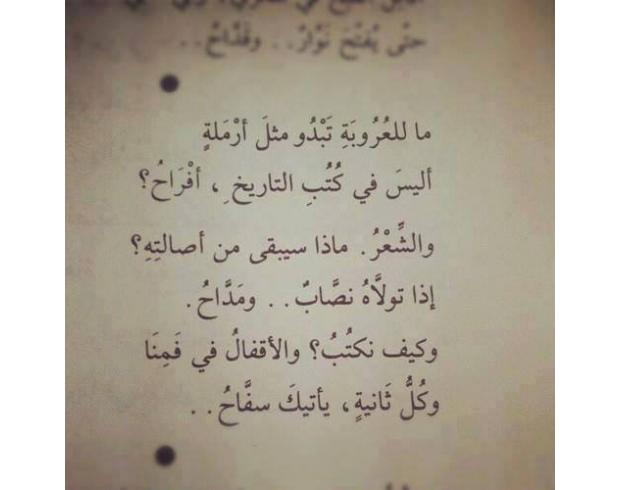 حتَّى يُفَتِّحَ نَوَّارٌ.. وقَدَّاحُ..
ما للعُرُوبَةِ تَبْدُو مثلَ أرْمَلةٍ
أليسَ في كُتُبِ التاريخِ، أفْرَاحُ؟
والشِّعْرُ. ماذا سيبقى من أصالتِهِ؟
إذا تولَّاهُ نصَّابٌ.. ومَدَّاحُ.
وكيف نكتُبُ؟ والأقفالُ في فَمِنَا
وكُلُّ ثَانيةٍ، يأتيكَ سفَّاحُ..